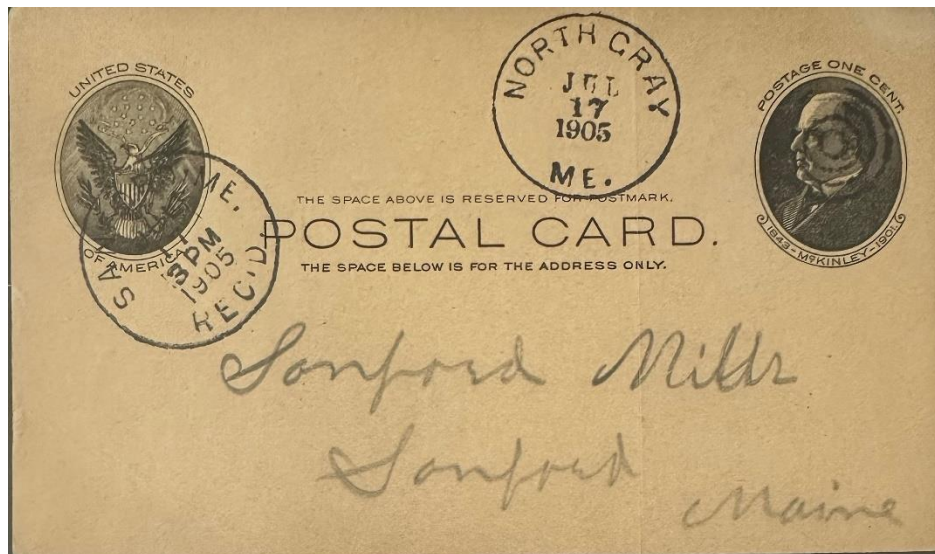 UNITED STATES
OF AMERICA
NORTH GRAY
JUL
17
1905
ME.
POSTAGE ONE CENT.
1843-McKINLEY-1901.
THE SPACE ABOVE IS RESERVED FOR POSTMARK.
POSTAL CARD.
THE SPACE BELOW IS FOR THE ADDRESS ONLY.
ME.
3PM
1905
REC'D
Sanford Mills
Sanford
Maine